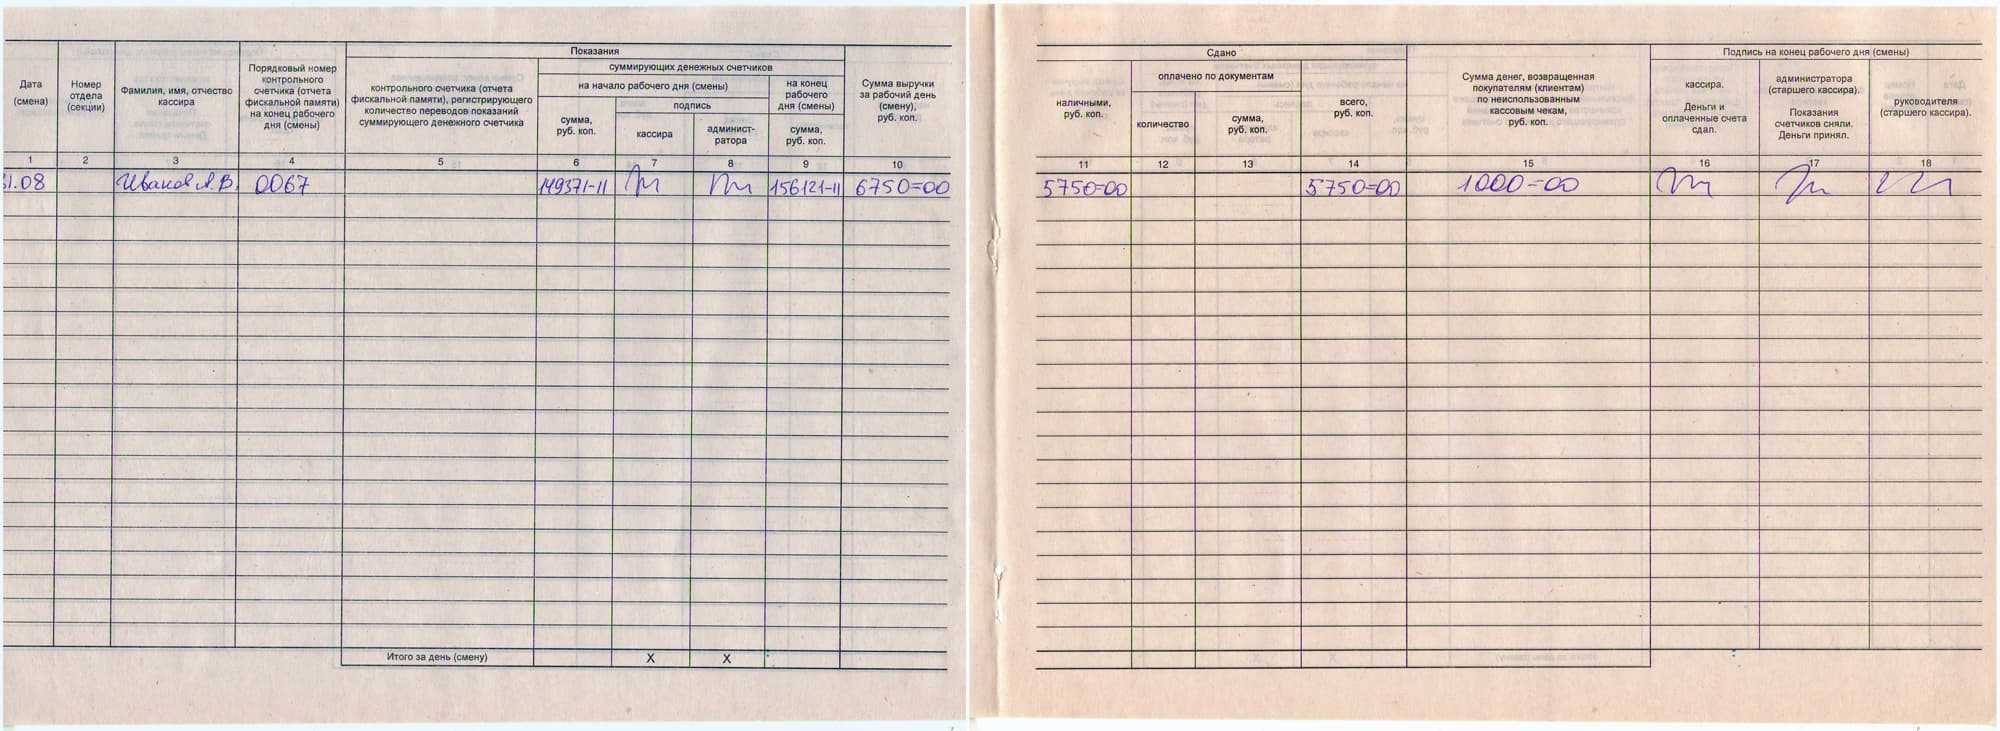 Показания
Дата
(смена)
Номер
отдела
(секции)
Фамилия, имя, отчество
кассира
Порядковый номер
контрольного
счетчика (отчета
фискальной памяти)
на конец рабочего
дня (смены)
контрольного счетчика (отчета
фискальной памяти), регистрирующего
количество переводов показаний
суммирующего денежного счетчика
суммирующих денежных счетчиков
на начало рабочего дня (смены)
сумма,
руб. коп.
подпись
кассира
админист-
ратора
на конец
рабочего
дня (смены)
сумма,
руб. коп.
Сумма выручки
за рабочий день
(смену),
руб. коп.
1 2 3 4 5 6 7 8 9 10
31.08 Иванов А.В. 0067 149371-11 156121-11 6750=00
Итого за день (смену) X X
Сдано
наличными,
руб. коп.
оплачено по документам
количество
сумма,
руб. коп.
всего,
руб. коп.
Сумма денег, возвращенная
покупателям (клиентам)
по неиспользованным
кассовым чекам,
руб. коп.
Подпись на конец рабочего дня (смены)
кассира.
Деньги и
оплаченные счета
сдал.
администратора
(старшего кассира).
Показания
счетчиков сняли.
Деньги принял.
руководителя
(старшего кассира).
11 12 13 14 15 16 17 18
5750=00 5750=00 1000=00